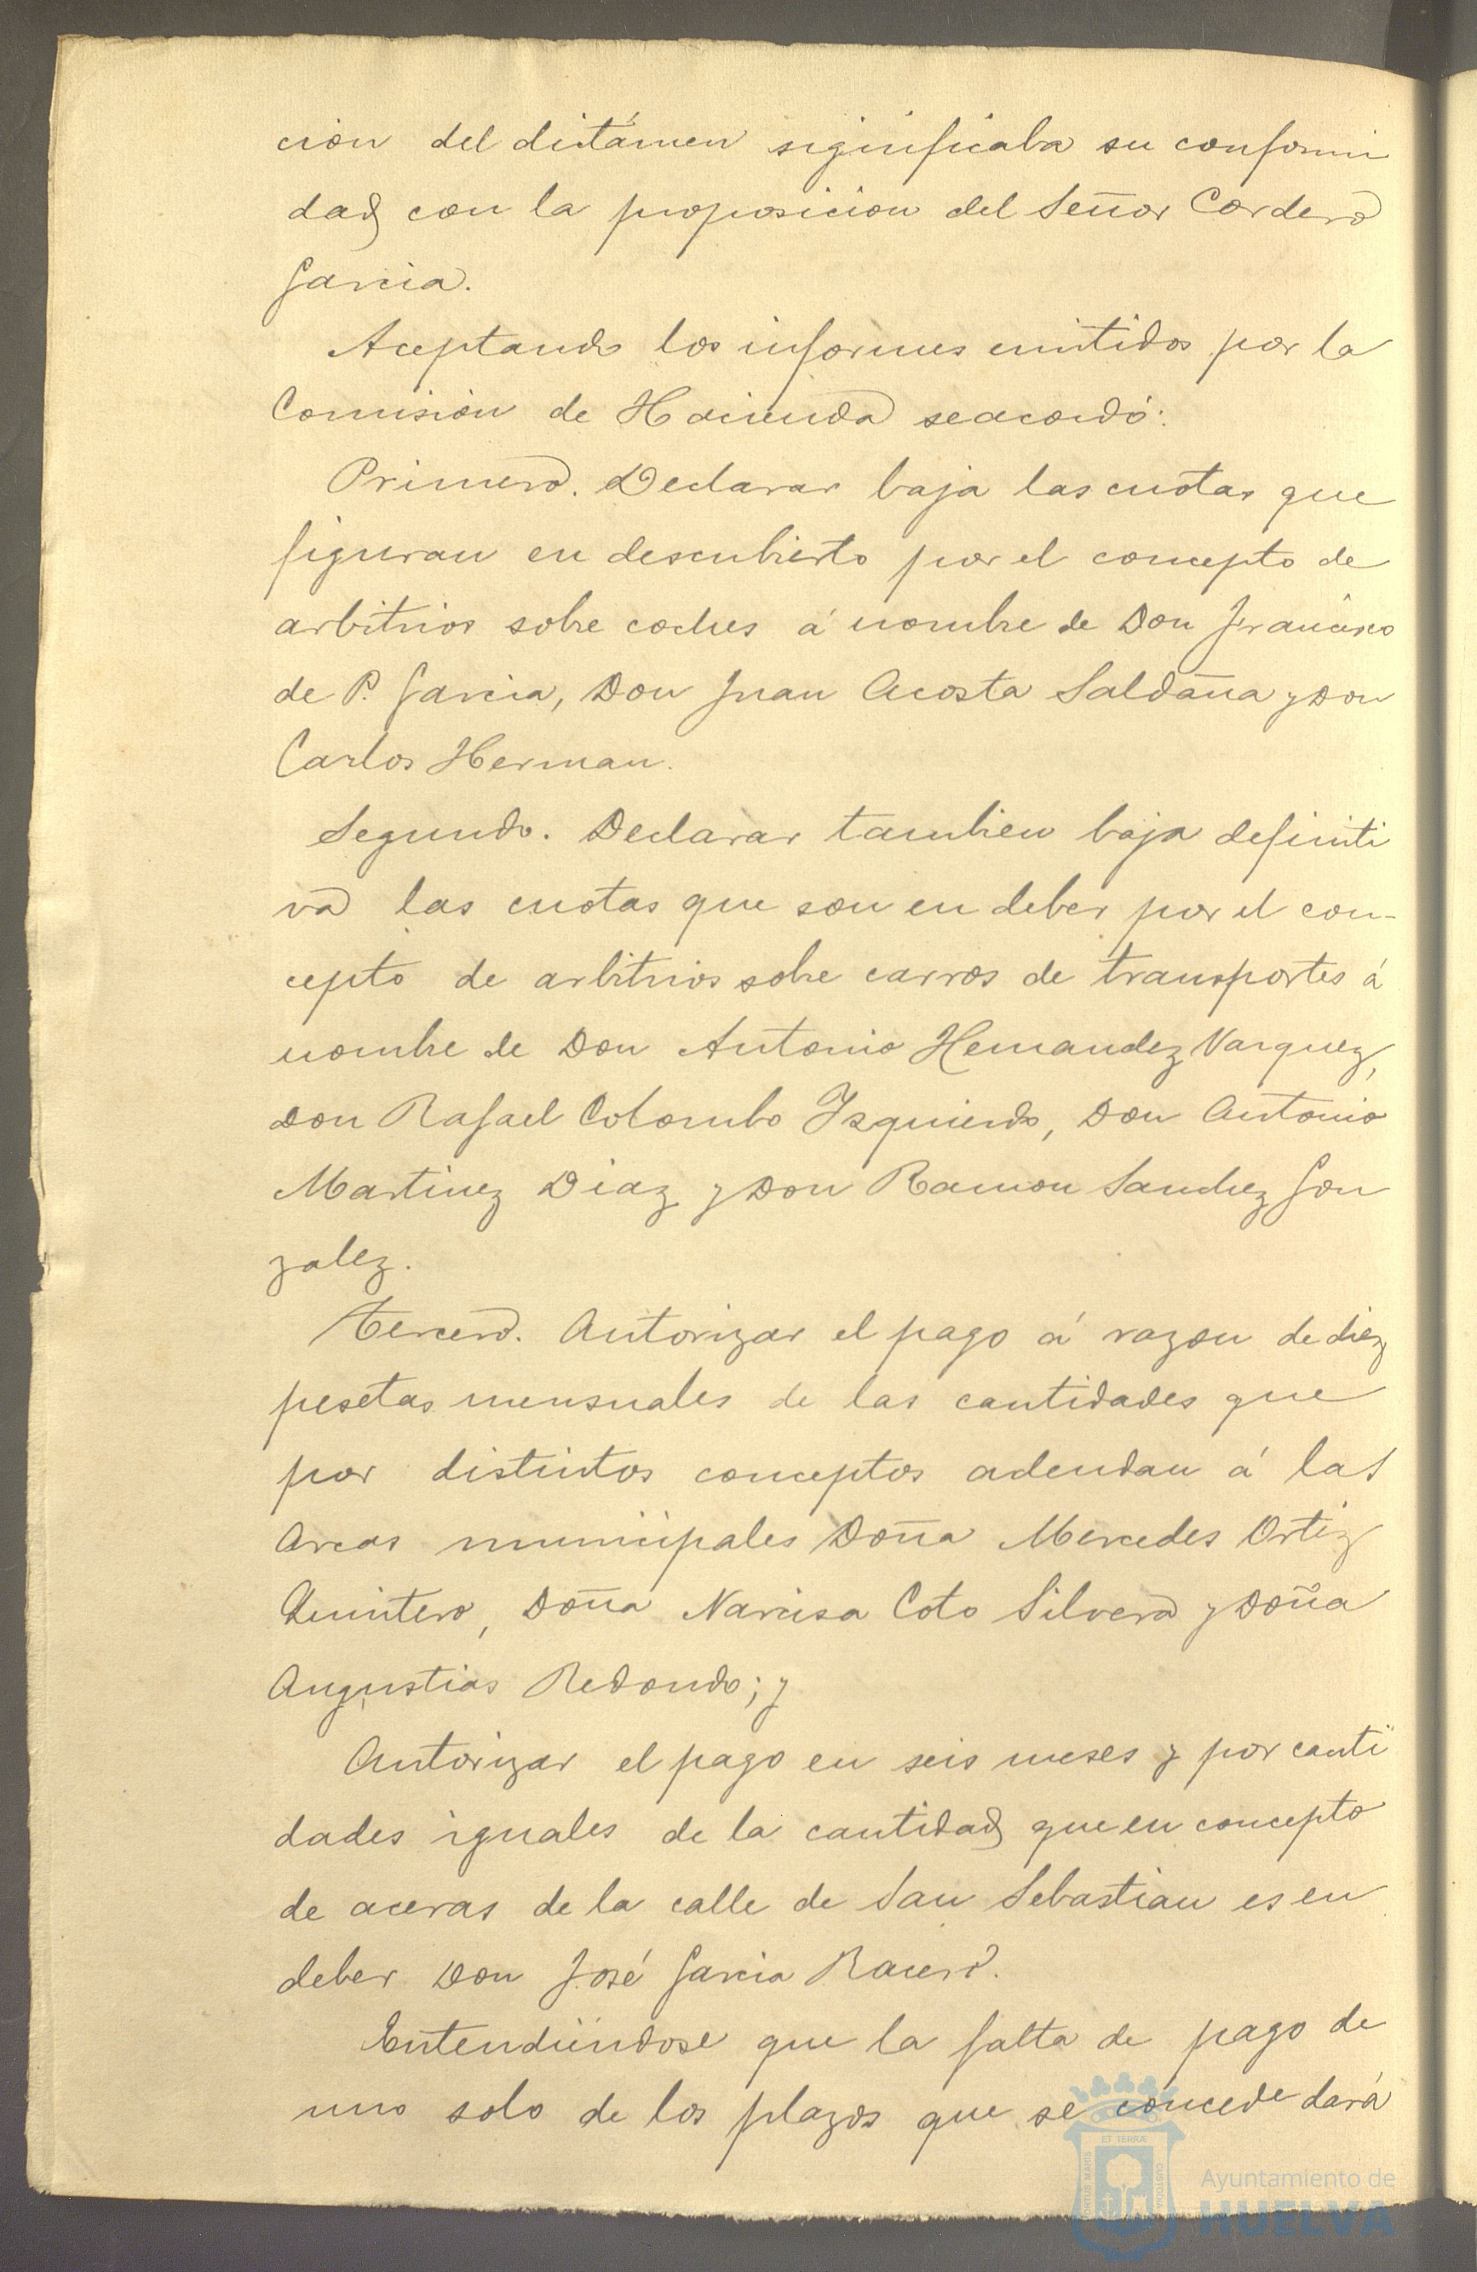 cion del dictámen significaba su conformi
dad con la proposicion del Señor Cordero
Garcia.
Aceptando los informes emitidos por la
Comisión de Hacienda se acordó:
Primero. Declarar baja las cuotas que
figuran en descubierto por el concepto de
arbitrios sobre coches á nombre de Don Francisco
de P. Garcia, Don Juan Acosta Saldaña y Don
Carlos Herman.
Segundo. Declarar tambien baja definiti
va las cuotas que son en deber por el con-
cepto de arbitrios sobre carros de transportes á
nombre de Don Antonio Hernandez Vazquez,
Don Rafael Colombo Izquierdo, Don Antonio
Martinez Diaz y Don Ramon Sanchez Gon
zalez.
Tercero. Autorizar el pago á razon de diez
pesetas mensuales de las cantidades que
por distintos conceptos adeudan á las
Arcas municipales Doña Mercedes Ortiz
Quintero, Doña Narcisa Coto Silvera y Doña
Angustias Redondo; y
Autorizar el pago en seis meses y por canti
dades iguales de la cantidad que en concepto
de aceras de la calle de San Sebastian es en
deber Don José Garcia Racero.
Entendiéndose que la falta de pago de
uno solo de los plazos que se concede dará
Ayuntamiento de
HUELVA